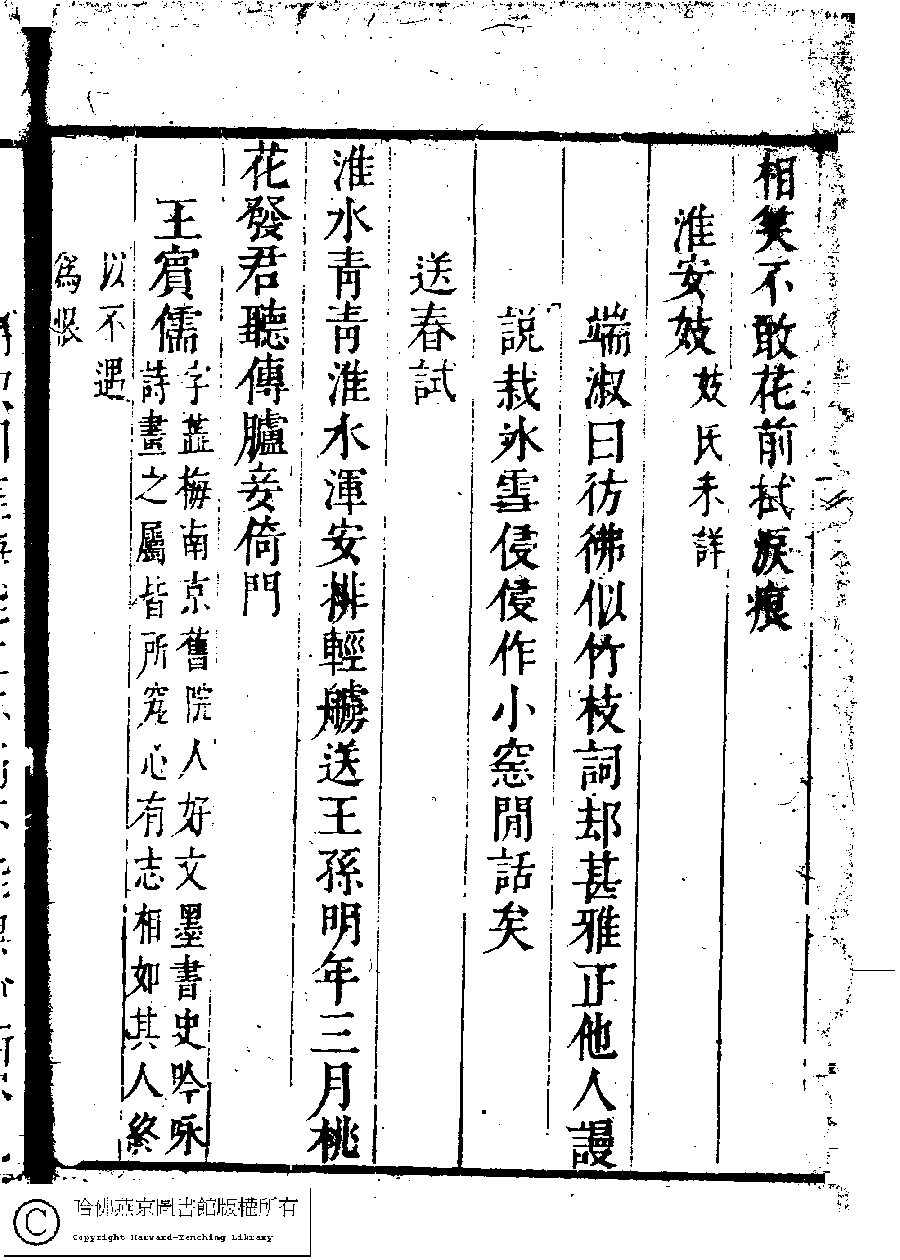 相笑不敢花前拭淚痕
淮安妓妓氏未詳
端淑曰彷彿似竹枝詞却甚雅正他人謾
説栽氷雪侵侵作小窓閒話矣
送春試
淮水青青淮水渾安排輕艣送王孫明年三月桃
花發君聽傳臚妾倚門
王賓儒
字蕋梅南京舊院人好文墨書史吟咏
詩畫之屬皆所究心有志相如其人終
以不遇
為恨
哈佛燕京圖書館版權所有
Copyright Harvard-Yenching Library